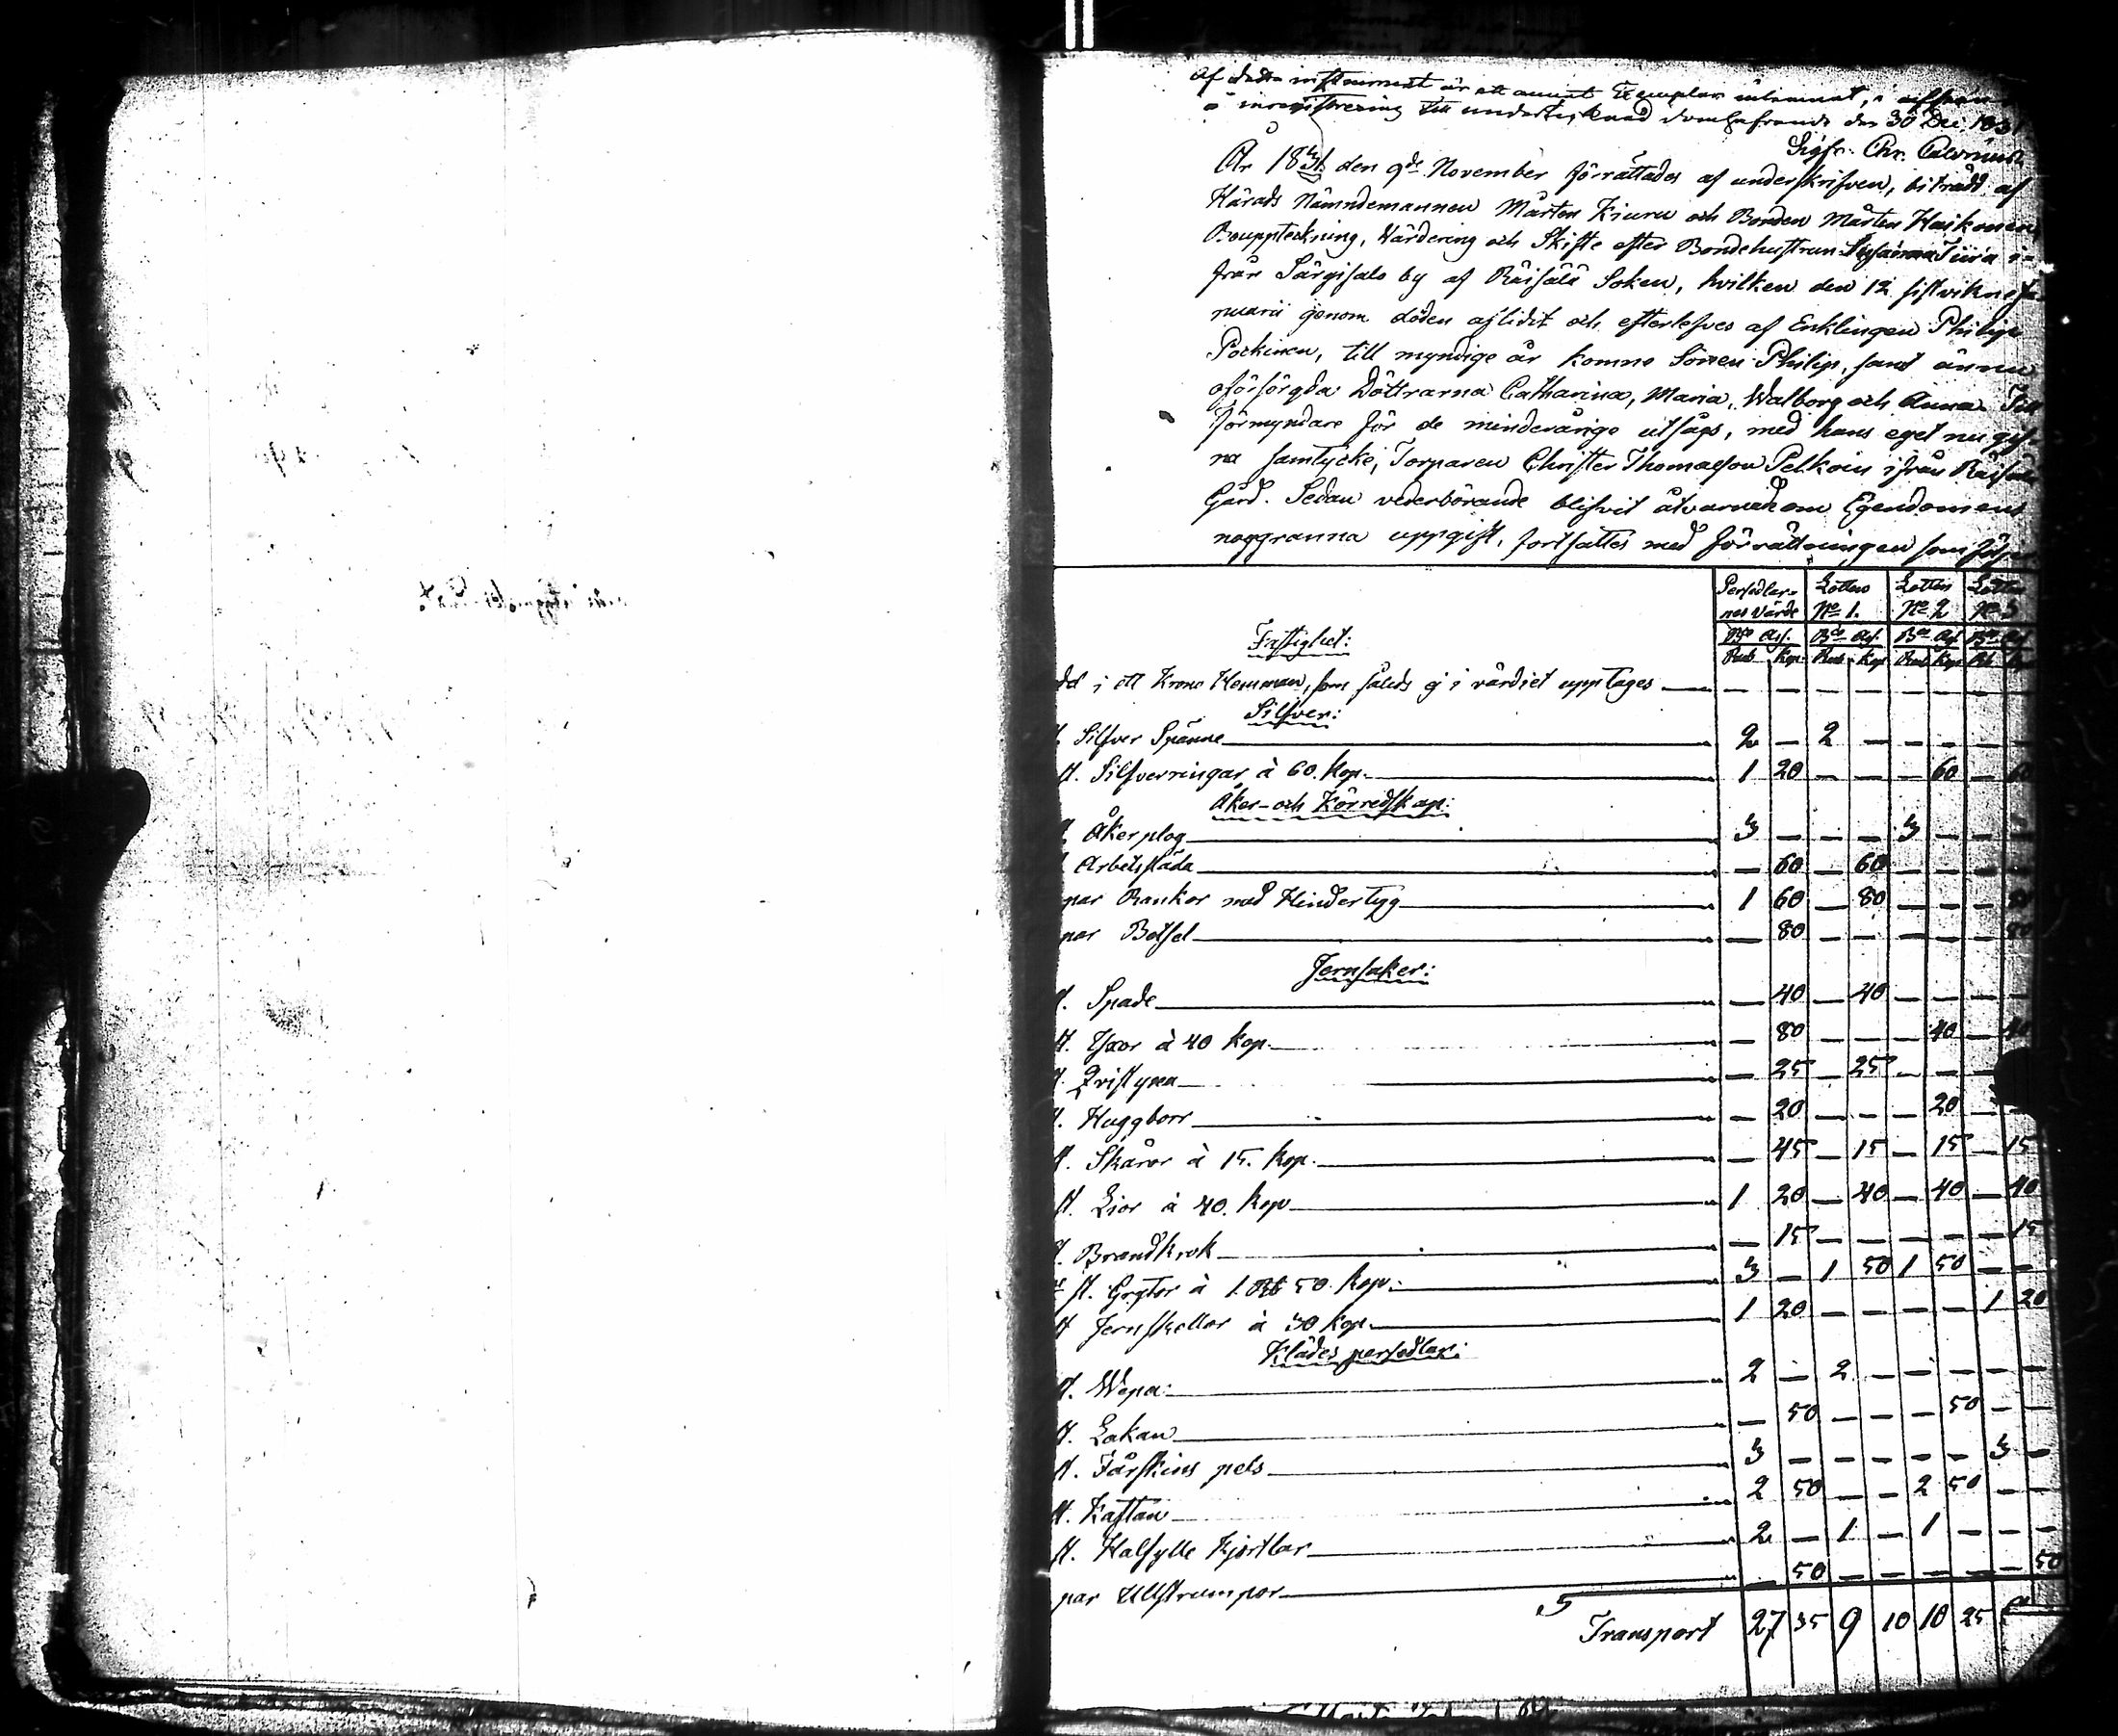 Af detta instrument är ett annat Exemplar inlemnat,
å inregistrering till undertecknad domhafvande den 30 Dec. 1831
Sigfr. Chr.
År 1831 den 9de November förrättades af underskrifven, biträdd af
Härads Nämndemannen Mårten Kiuru och Bonden Mårten Haikonen
Bouppteckning, Wärdering och Skifte efter Bondehustrun Susanna Tiira i-
från Särgisalo by af Räisälä Soken, hvilken den 12 sistvikne Ja-
nuarii genom döden aflidit och efterlefves af Enklingen Philip
Poskinen, till myndige år komne Sonen Philip, samt ännu
oförsörgda Döttrarna Catharina, Maria, Walborg och Anna. Till
Förmyndare för de minderårige utsågs, med hans eget nu gif-
na samtycke, Torparen Christer Thomasson Pelkoin ifrån Räisälä
Gård. Sedan vederbörande blifvit åtvarnade om Egendomens
noggranna uppgift, fortsattes med förrättningen som följer
Persedlar- Lotten Lotten Lotten
nes värde No 1. No 2 No 3
Bco Ass. Bco Ass. Bco Ass. Bco Ass.
Fastighet: Rub Kop. Rub Kop Rub Kop Rb
del i ett Krono Hemman, som således ej i värdiet upptages — — — — — — — —
Silfver:
st. Silfver Spänne 2 — 2 — — — — —
st. Silfverringar à 60. Kop. 1 20 — — — 60 — 60
Åker- och Körredskap:
st. Åkerplog 3 — — — 3 — — —
st. Arbetssläda — 60 — 60 — — — —
par Rankor med Hindertyg 1 60 — 80 — — — 80
par Betsel — 80 — — — — — 80
Jernsaker:
st. Spade — 40 — 40 — — — —
st. Yxor à 40 Kop. — 80 — — — 40 — 40
st. Qvistyxa — 25 — 25 — — —
st. Huggborr — 20 — — — 20 —
st. Skäror à 15. Kop. — 45 — 15 — 15 — 15
st. Lior à 40. Kop 1 20 — 40 — 40 — 40
st. Brandkrok — 15 — — — — — 15
st. Grytor à 1. Rb 50 Kop. 3 — 1 50 1 50 — —
st Jernskellor à 30 Kop. 1 20 — — — — 1 20
Klädes persedlar:
st. Wepa 2 — 2 — — — — —
st. Lakan — 50 — — — 50 — —
st. Fårskins pels 3 — — — — — 3 —
st. Kaftan 2 50 — — 2 50 — —
st. Halfylle Kjortlar 2 — 1 — 1 — — —
par Ullstrumpor — 50 — — — — — 50
Transport 27 35 9 10 10 25